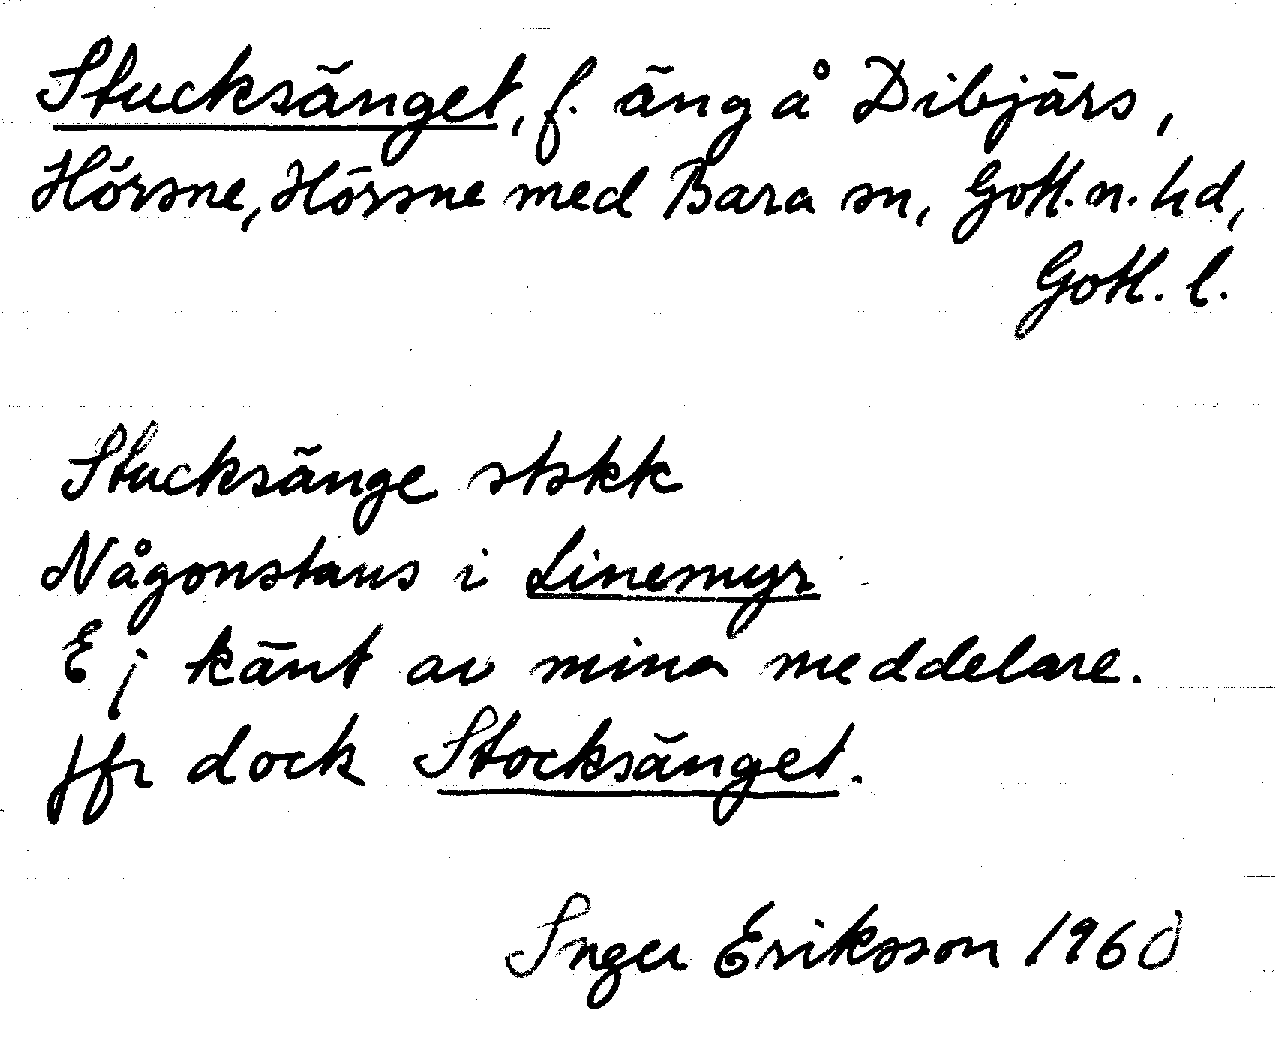 Stucksänget, f. äng å Dibjärs,
Hörsne, Hörsne med Bara sn, Gotl. n. hd,
Gotl. l.
Stucksänge stskk
Någonstans i Linemyr
Ej känt av mina meddelare.
Jfr dock Stocksänget.
Inger Eriksson 1960